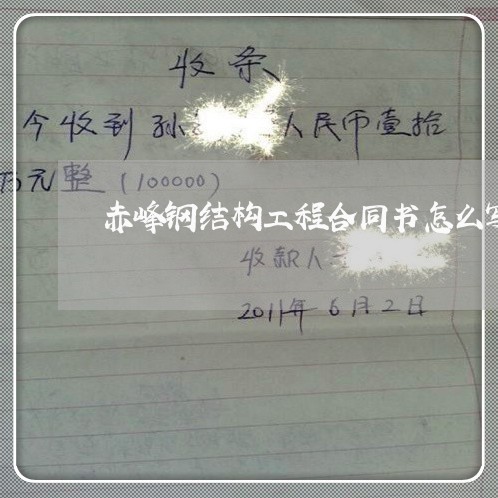 收条
今收到孙 人民币壹拾
万元整（100000）
赤峰钢结构工程合同书怎么写
收款人
2011年6月2日